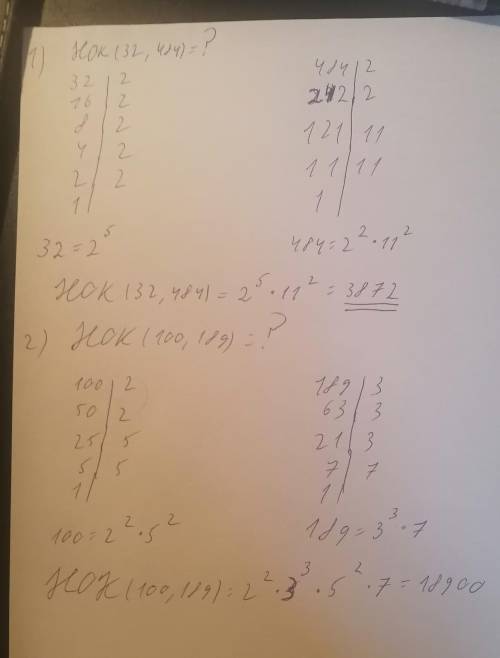 1) НОК (32, 484) = ?
32 | 2
16 | 2
8 | 2
4 | 2
2 | 2
1 |
484 | 2
242 | 2
121 | 11
11 | 11
1 |
32 = 2⁵
484 = 2² · 11²
НОК (32, 484) = 2⁵ · 11² = 3872
2) НОК (100, 189) = ?
100 | 2
50 | 2
25 | 5
5 | 5
1 |
189 | 3
63 | 3
21 | 3
7 | 7
1 |
100 = 2² · 5²
189 = 3³ · 7
НОК (100, 189) = 2² · 3³ · 5² · 7 = 18900